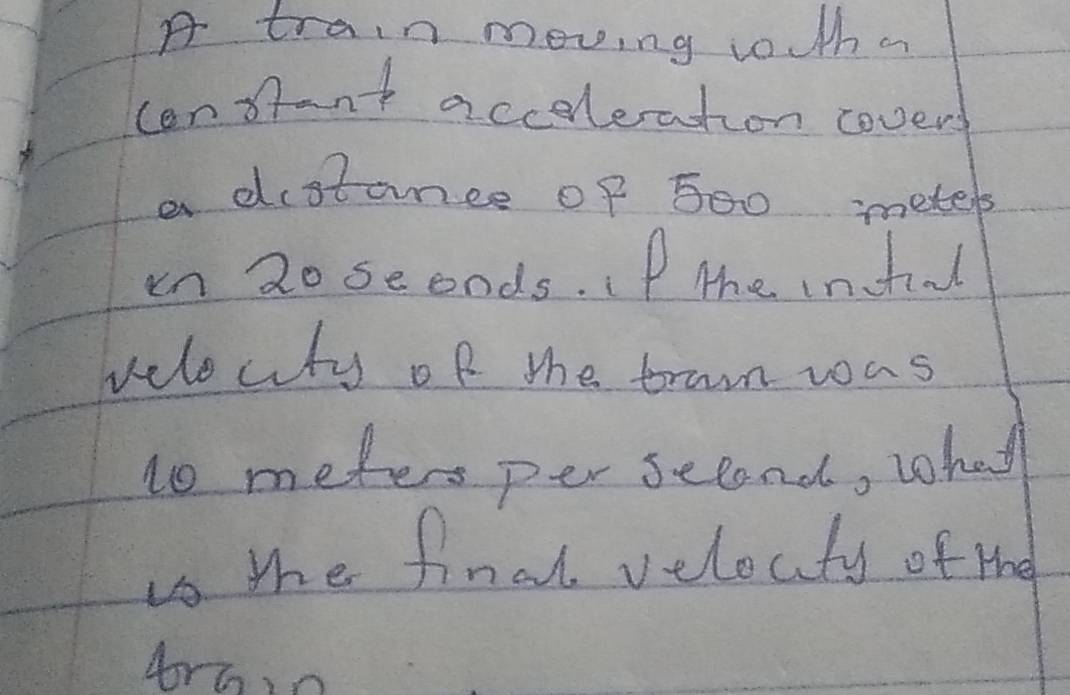 A train moving with a
constant acceleration covers
a distance of 500 meters
in 20 seconds. if the initial
velocity of the train was
10 meters per second, what
is the final velocity of the
train